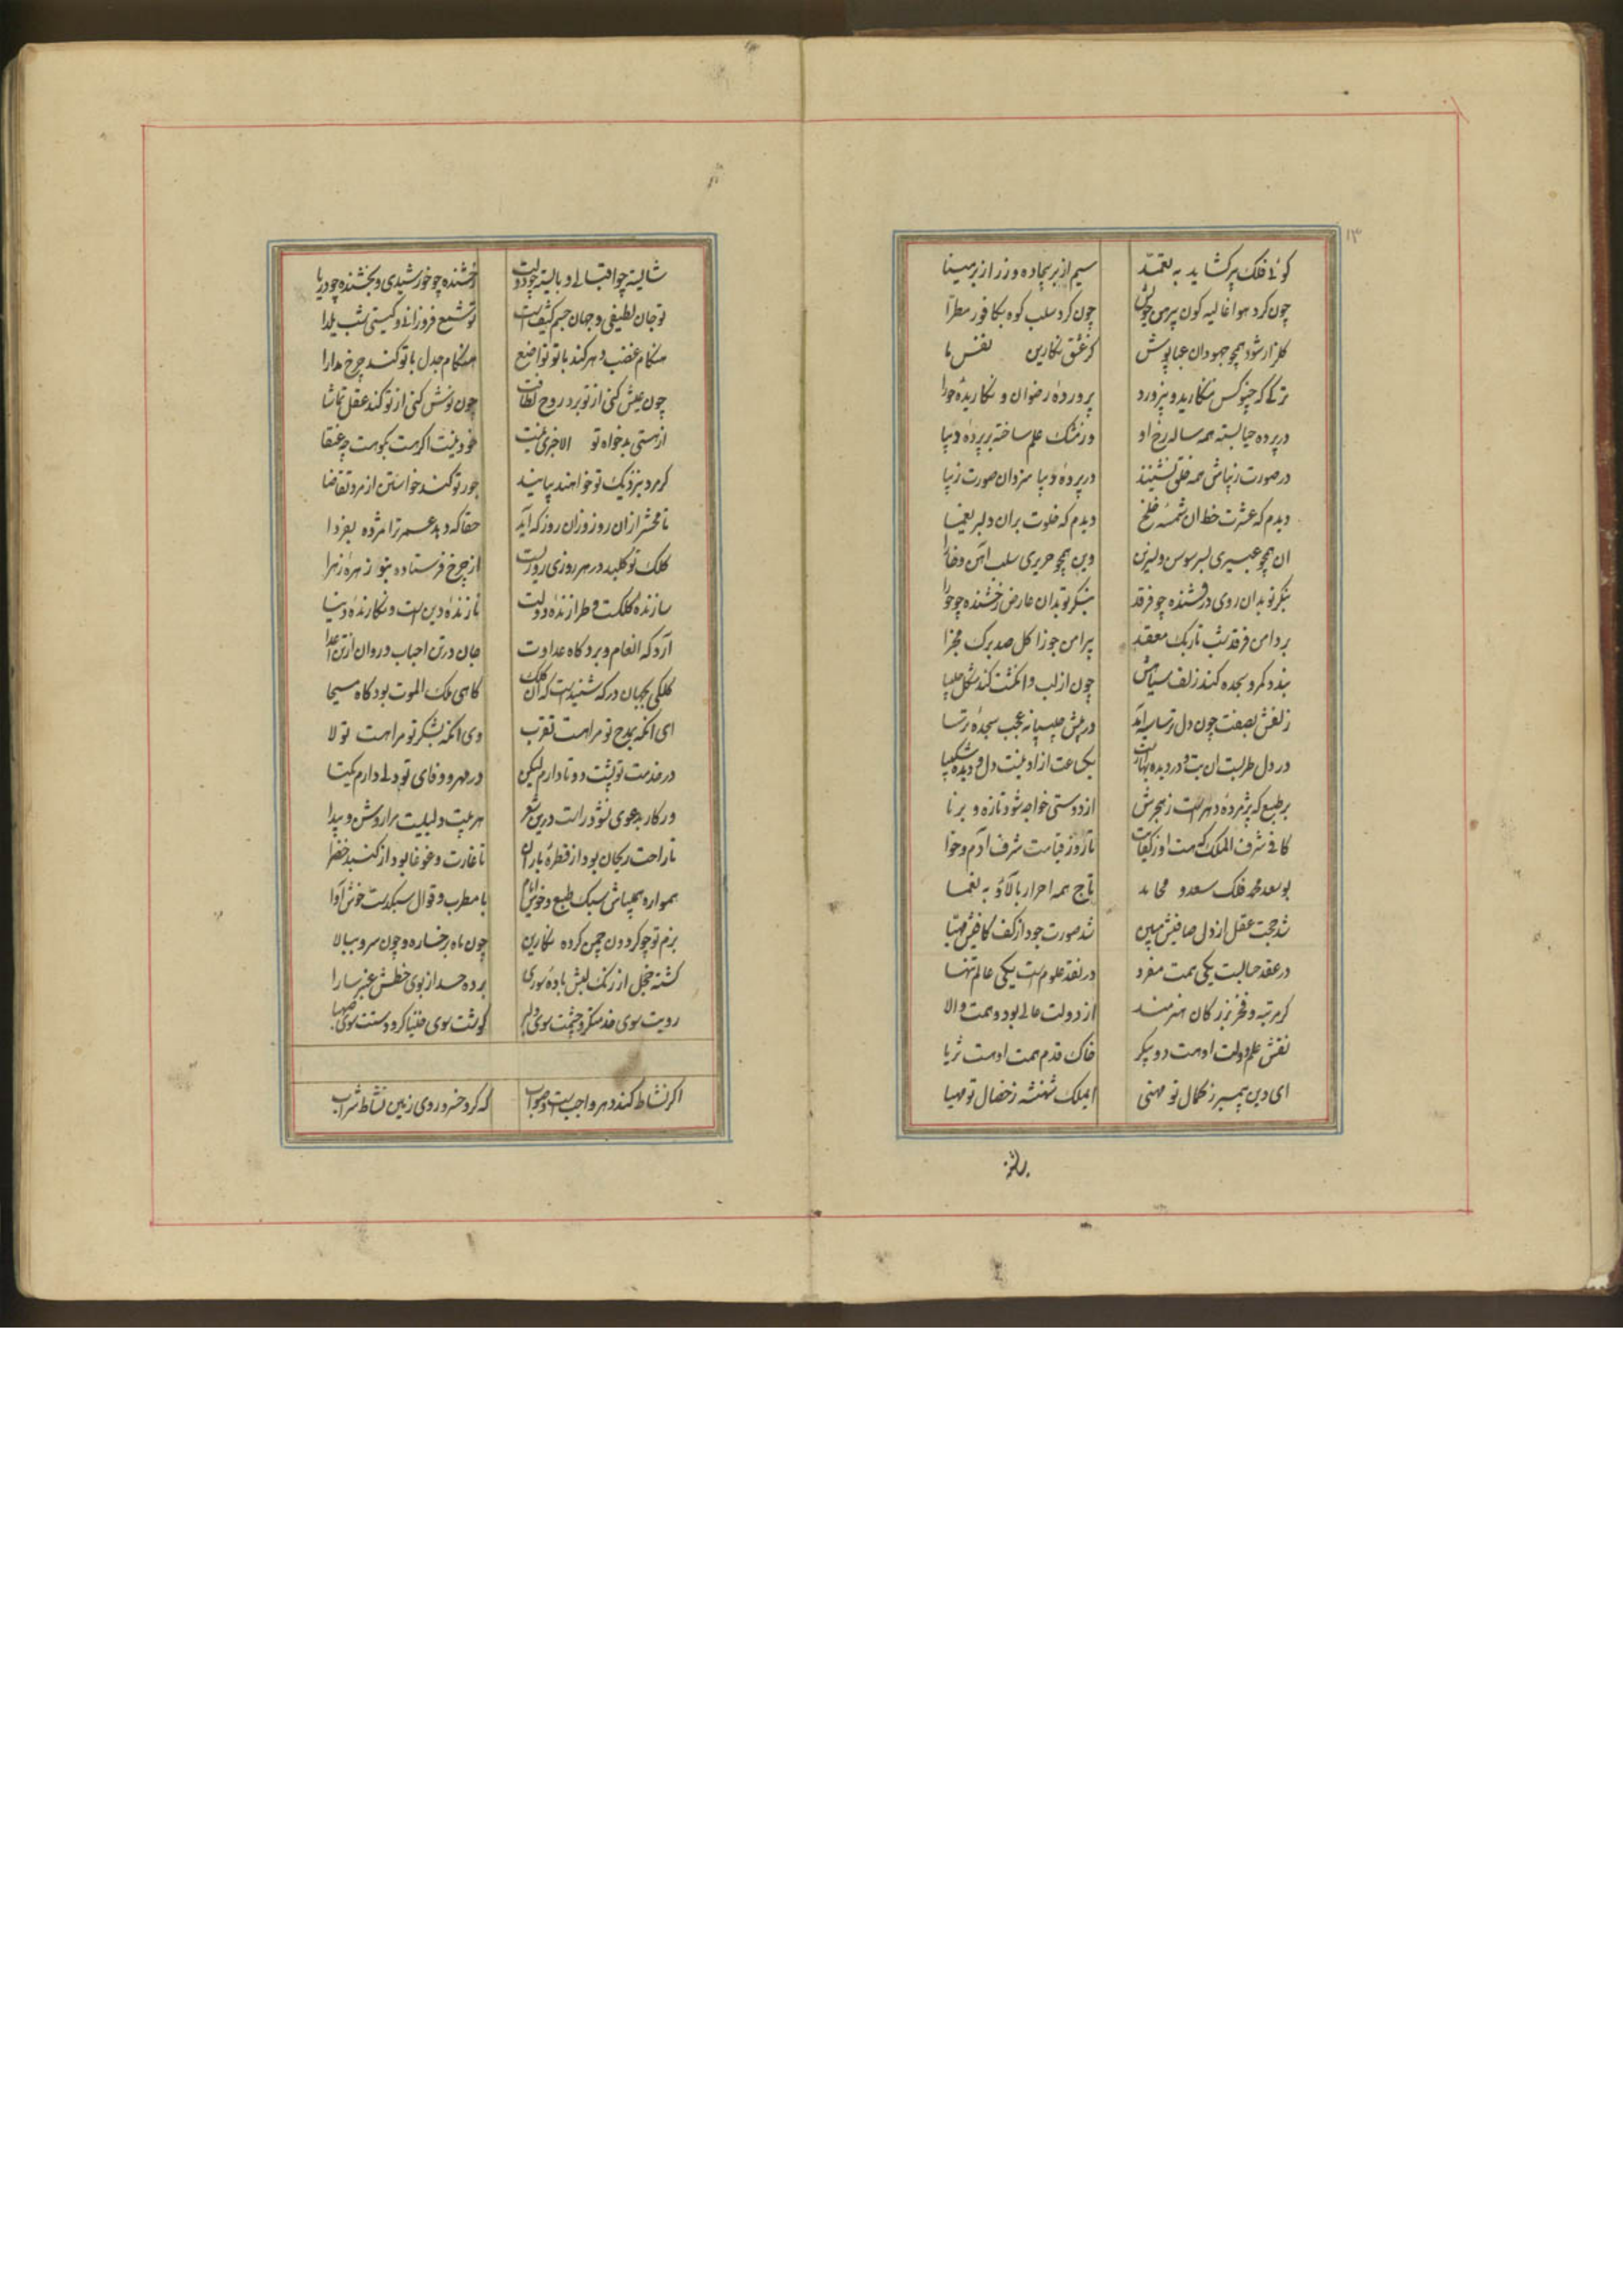 ۱۳
کوئی فلک پر کشاید به تعمد سیم از بر بیجاده و زر از بر مینا
چون کرد هوا غالیه کون پیرهن خویش چون کرد سلب کوه بکافور مطرا
کلزار شود همچو جهودان عبا پوش کز عشق نکارین نفس ما
ترکی که چنو کس ننکارید و نپرورد پرورده رضوان و نکاریده حورا
در پرده حیا بسته همه ساله رخ او وز مشک علم ساخته بر پرده دیبا
در صورت زیباش همه خلق نشینند در پرده دیبا سزد ان صورت زیبا
دیدم که عشرت خط ان شمسه خلخ دیدم که خلوت بر ان دلبر یغما
ان همچو عبیری بسر سوسن و نسرین وین همچو حریری سلب اهن و خارا
بنکر تو بدان روی درفشنده چو فرقد بنکر تو بدان عارض رخشنده چو جوزا
بر دامن فرقد شب تاریک معقد پیرامن جوزا کل صد برک مجزا
بندد کمر و سجده کند زلف سیاهش چون از لب و انکشت کند شکل چلیپا
زلفش بصفت چون دل ترسا سیه آید در پیش چلیپا نه عجب سجده ترسا
در دل طربست ان بت و در دیده بهارست یکساعت ازو نیست دل و دیده شکیبا
بر طبع که پژمرده دهرست ز هجرش از دوستی خواجه شود تازه و برنا
کافی شرف الملک که هست او ز کفایت تا روز قیامت شرف آدم و حوا
بوسعد محمد فلک سعد و محامد تاج همه احرار بالآؤ به نعما
شد حجت عقل از دل صافیش مبین شد صورت جود از کف کافیش مهیا
در عقد حیالیت یکی همت مفرد در نقد علوم است یکی عالم تنها
کر مرتبه و فخر بزرکان هنرمند از دولت عالی بود و همت والا
نقش علم دولت اوست دو پیکر خاک قدم همت اوست ثریا
ای دین پیمبر ز کمال تو مهنی ایملک شهنشه ز خصال تو مهیا
شایسته چو اقبالی و بایسته چو دولت رخشنده چو خورشیدی و بخشنده چو دریا
تو جان لطیفی و جهان جسم کثیف است تو شمع فروزانی و کیتی شب یلدا
هنکام غضب دهر کند با تو تواضع هنکام جدل با تو کند چرخ مدارا
چون عیش کنی از تو برد روح لطافت چون نوش کنی از تو کند عقل تماشا
از هستی بدخواه تو الا خبری نیست خود نیست اکر هست بکو هست چه عنقا
کر مرد بنزدیک تو خواهند بیایند جود تو کند خواستن از مرد تقاضا
تا محشر ازان روز وزان روز که آید حقا که دهد عمر ترا مژده بفردا
کلک تو کلید در هر روزی روزیست از چرخ فرستاده بتو زهره زهرا
سازنده ملکت و طرازنده دولت نازنده دین است و نکارنده دنیا
آرد که انعام و برد کاه عداوت جان در تن احباب و روان از تن اعدا
کلکی بجهان در که شنیدست که ان کلک کاهی ملک الموت بود کاه مسیحا
ای انکه بمدح تو مرا هست تقرب وی انکه بشکر تو مرا هست تولا
در خدمت تو پشت دوتا دارم لیکن در مهر و وفای تو دلی دارم یکتا
در کار بدعوی نشود راست درین شعر هر بیت دلیلیست مرا روشن و پیدا
تا راحت ریحان بود از قطره باران تا غارت و غوغا بود از کنبد خضرا
همواره همیباش سبک طبع و خوش ایام با مطرب و قوال سبکدست خوش آوا
بزم تو چو کردون چمن کرده نکارین چون ماه برخساره و چون سرو ببالا
کشته خجل از رنک لبش باده سوری برده حسد از بوی خطش عنبر سارا
رویت سوی خدمتکر و چشمت سوی دلبر کوشت سوی خنیاکر و دستت سوی صهبا
اکر نشاط کند دهر واجبست و صواب که کرد خسرو روی زمین نشاط شراب